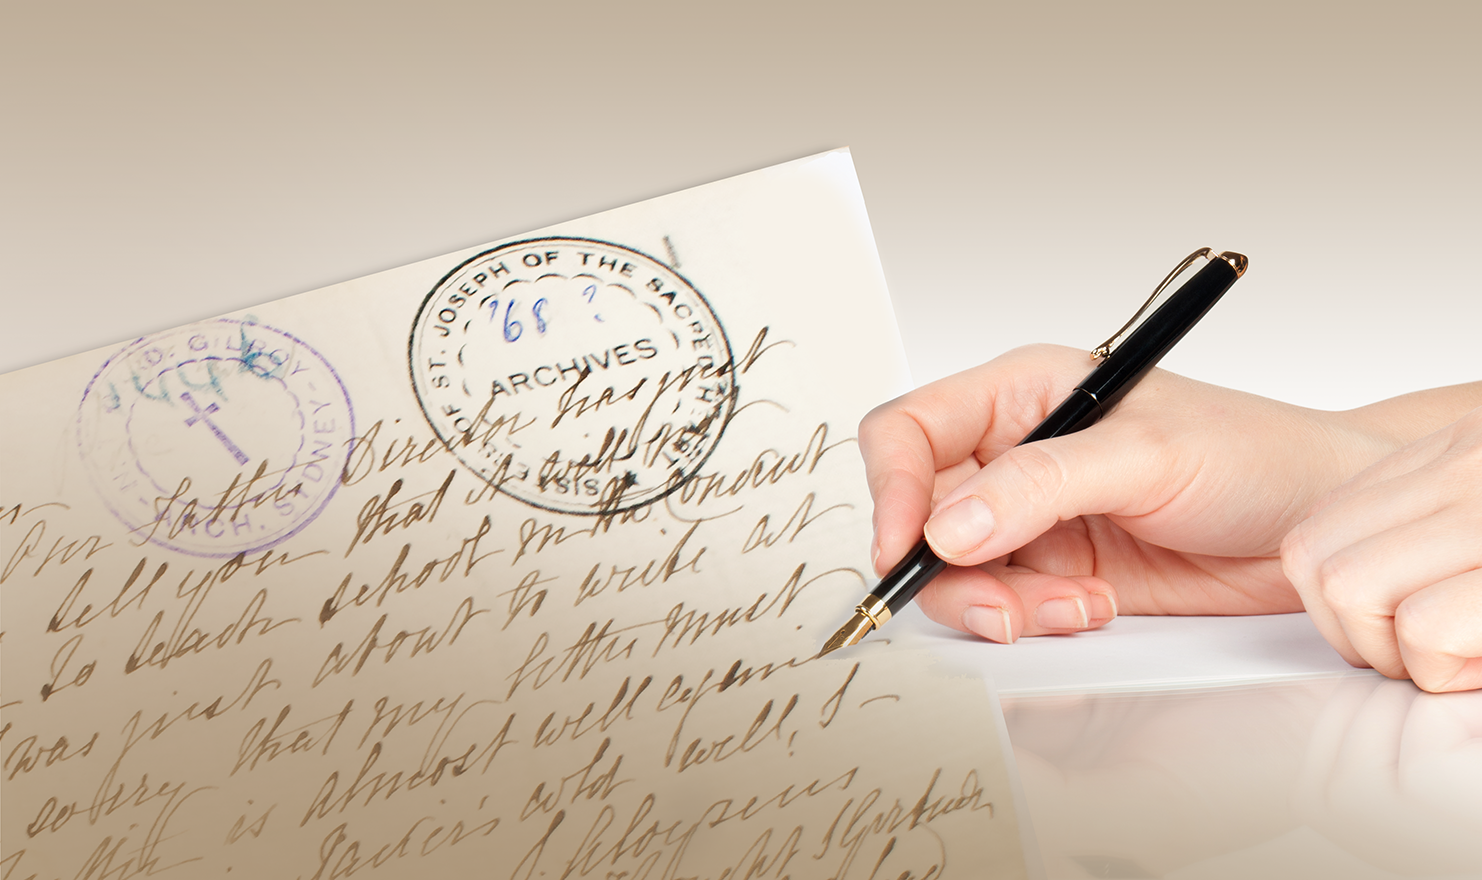 D. GILROY - ARCH. SYDNEY
SISTERS OF ST. JOSEPH OF THE SACRED HEART
'68 ?
ARCHIVES
Our Father Director has just
tell you that it will
to teach school in the convent
was just about to write
sorry that my letter must
is almost well again
Xavier's cold well, I
S. Aloysius
S Gertrude